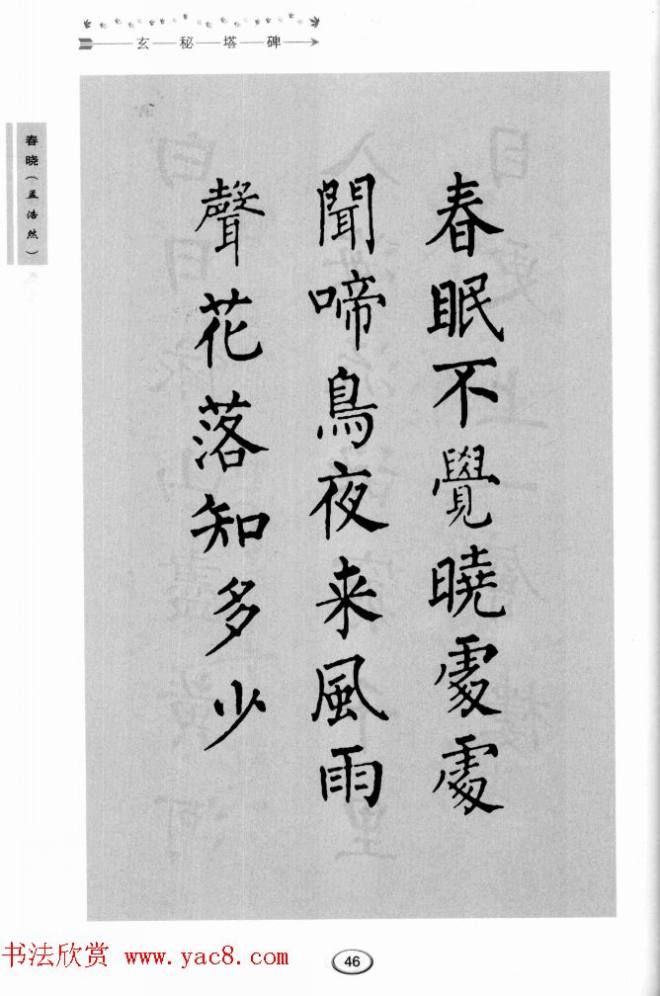 玄秘塔碑
春晓(孟浩然)
春眠不覺曉處處
聞啼鳥夜来風雨
聲花落知多少
书法欣赏 www.yac8.com
46